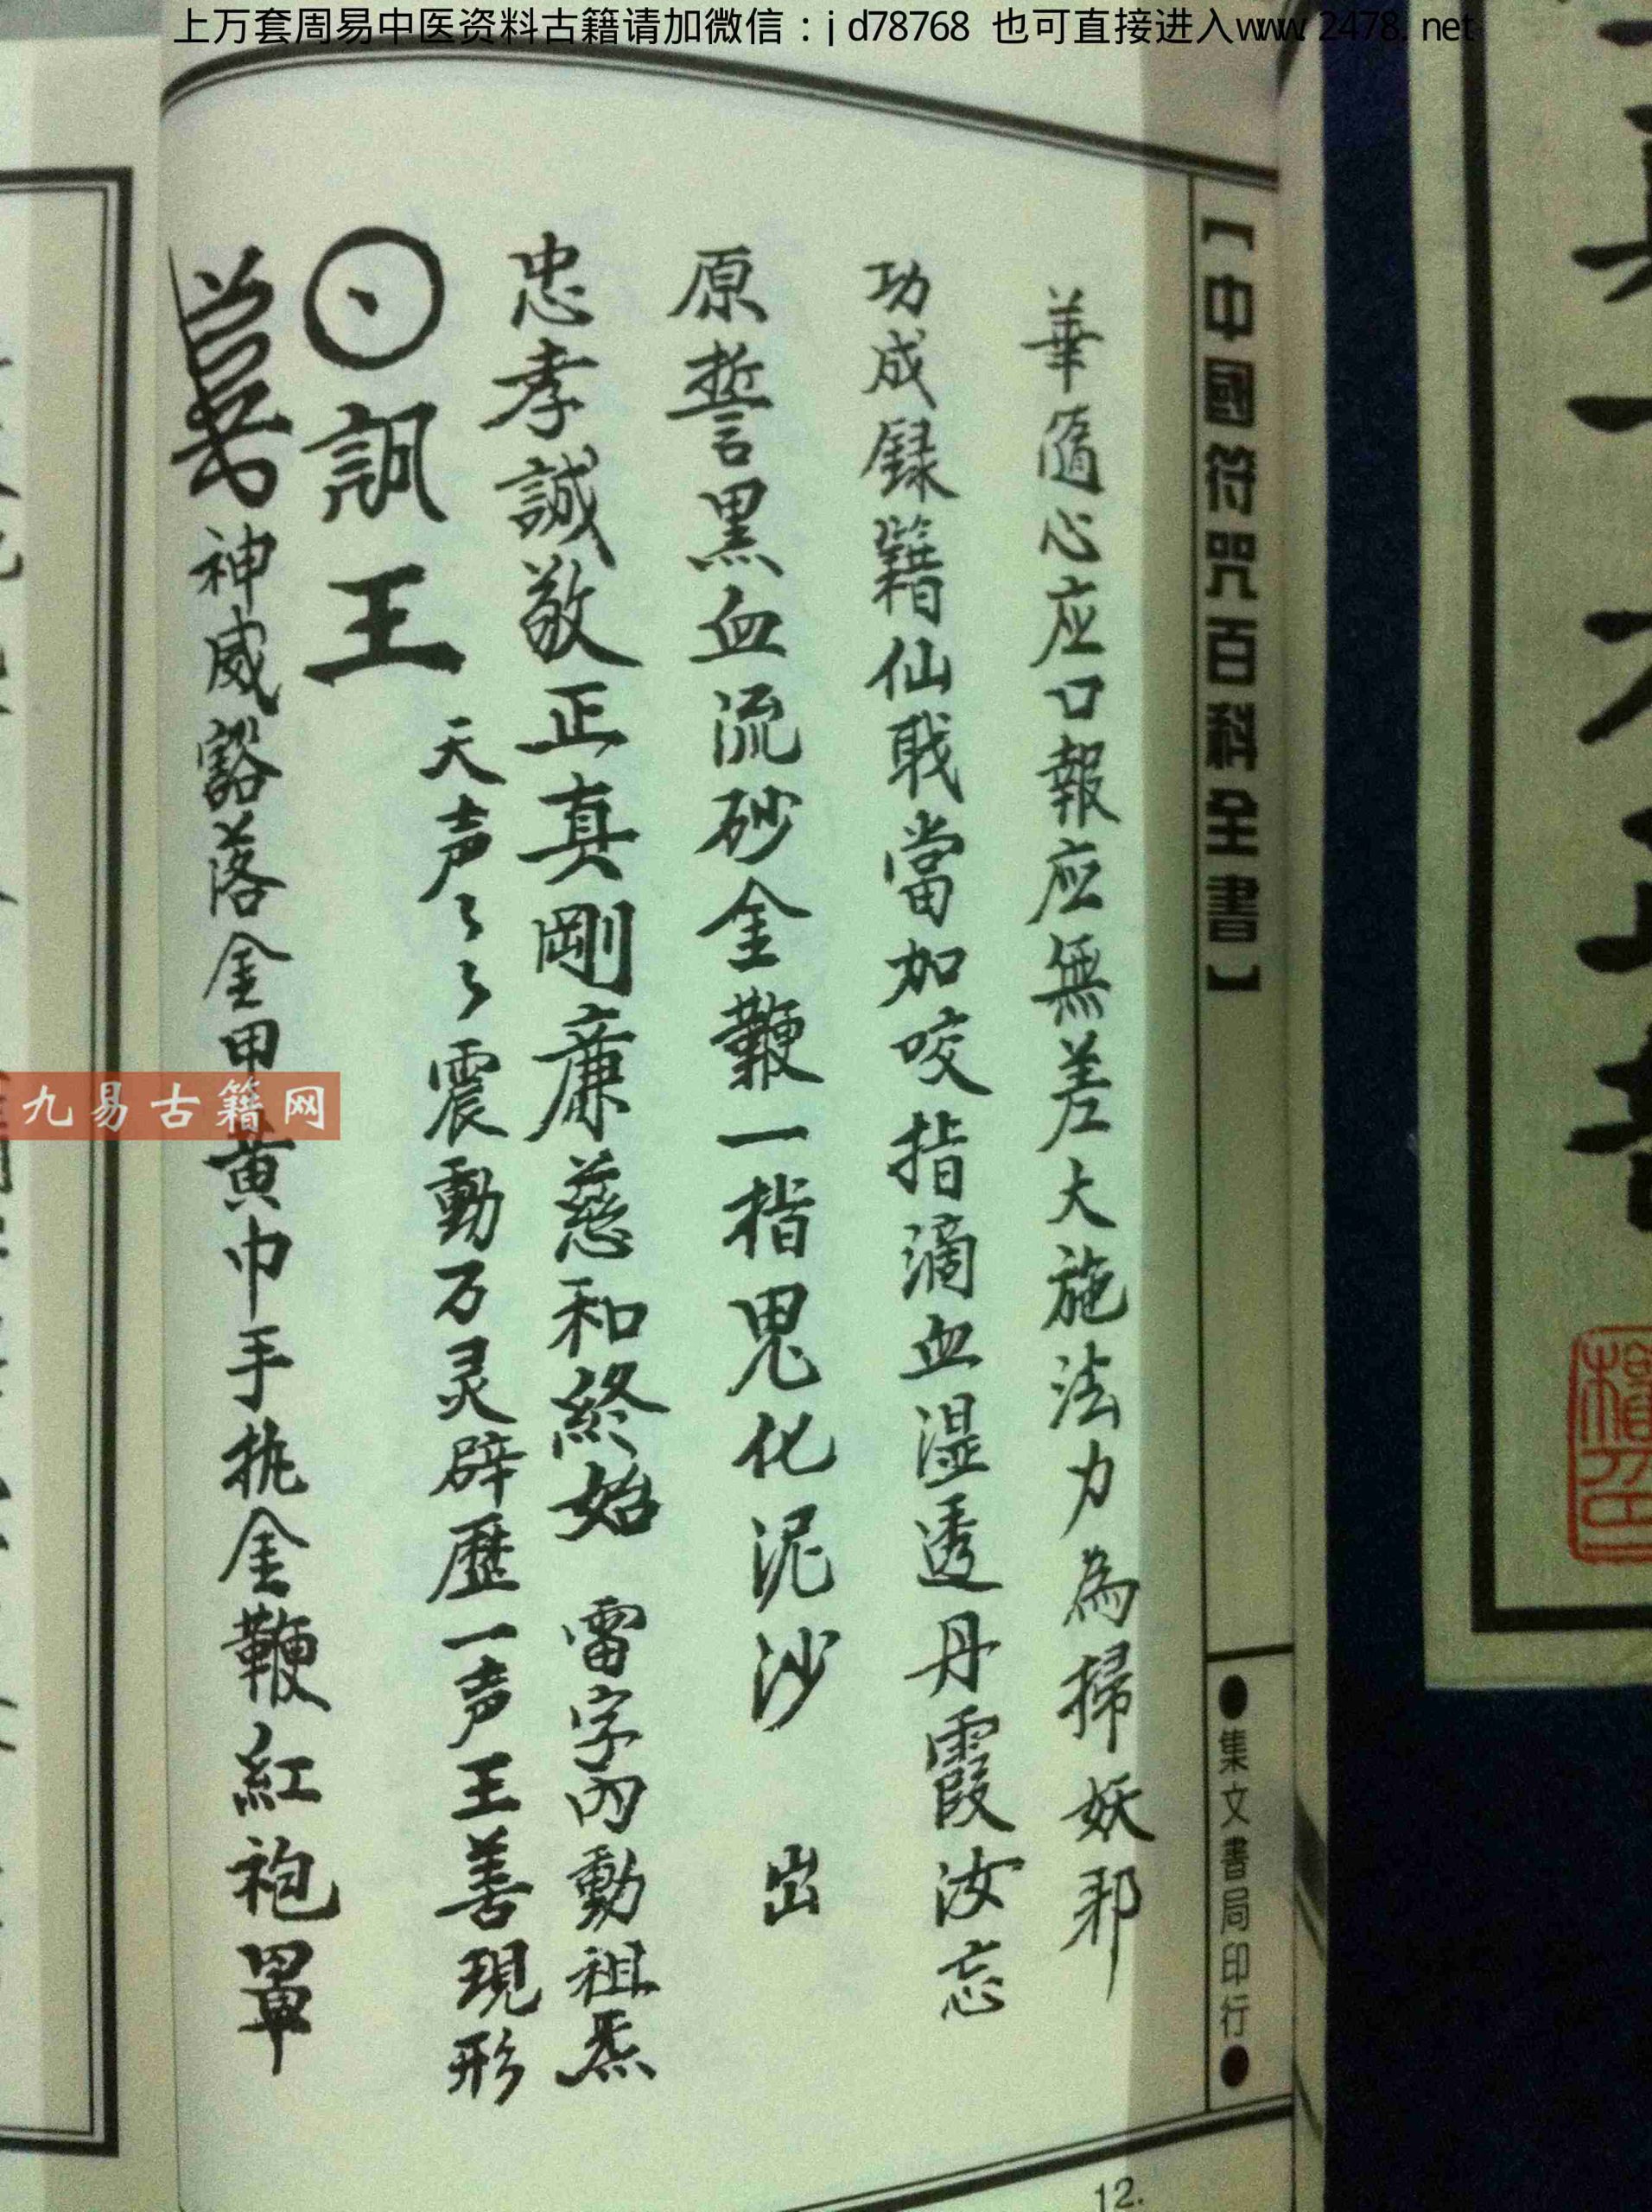 上万套周易中医资料古籍请加微信：jd78768 也可直接进入www.2478.net
【中國符咒百科全書】
●集文書局印行●
華随心应口報应無差大施法力為掃妖邪
功成録籍仙戢當加咬指滴血湿透丹霞汝忘
原誓黒血流砂金鞭一指鬼化泥沙 出
忠孝誠敬正真剛廉慈和終始 雷字内動祖炁
王 天声々々震動万灵辟歷一声王善現形
神威豁落金甲黄巾手执金鞭紅袍罩
九易古籍网
12.